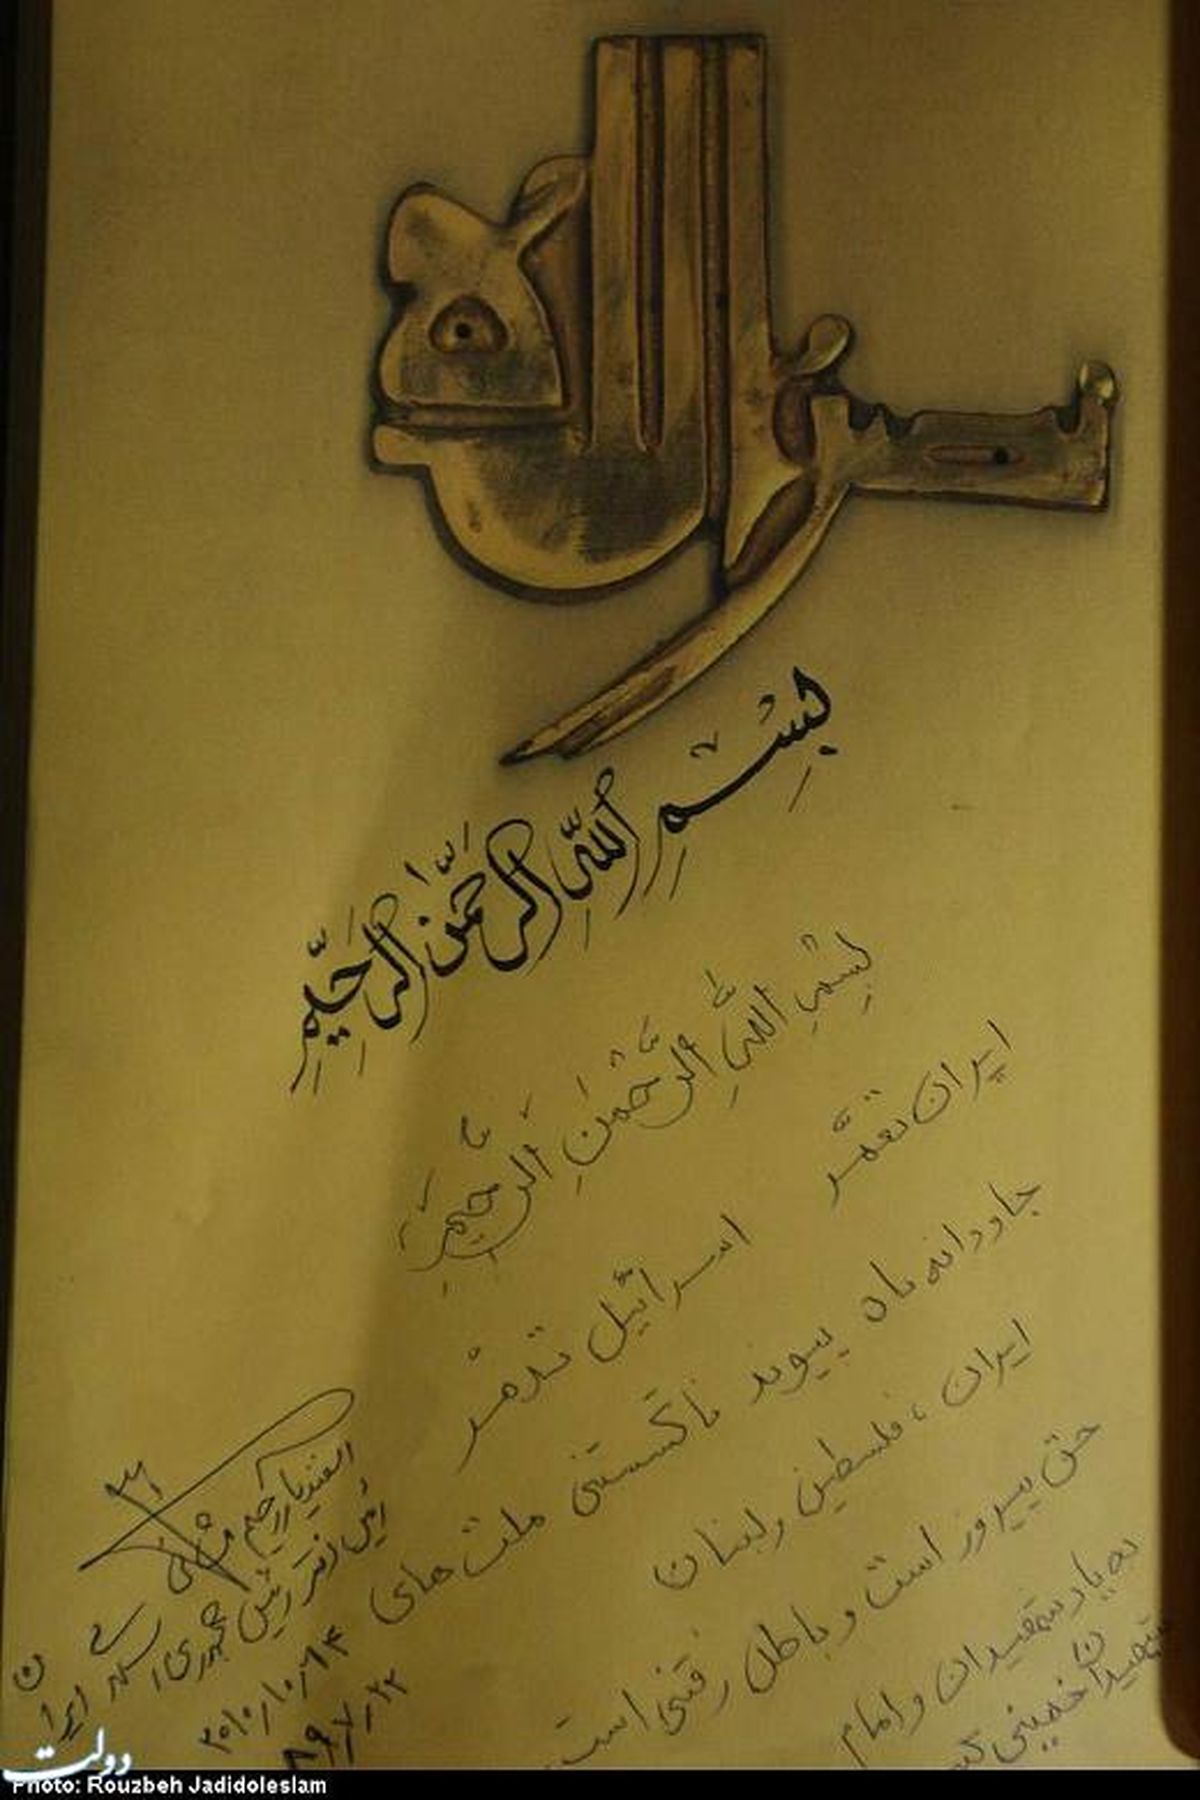 بِسْمِ اللَّهِ الرَّحْمَنِ الرَّحِيمِ
بِسْمِ اللَّهِ الرَّحْمَنِ الرَّحِيمِ
ایران تعمّر اسرائیل تدمّر
جاودانه بان پیوند ناگسستنی ملت های
ایران، فلسطین و لبنان
حق پیروز است و باطل رفتنی است
به یاد شهیدان و امام
شهیدان خمینی
اسفندیار رحیم مشائی
رئیس دفتر رئیس جمهوری اسلامی ایران
۲۰۱۰/۱۰/۱۴
۸۹/۷/۲۲
دولت
Photo: Rouzbeh Jadidoleslam